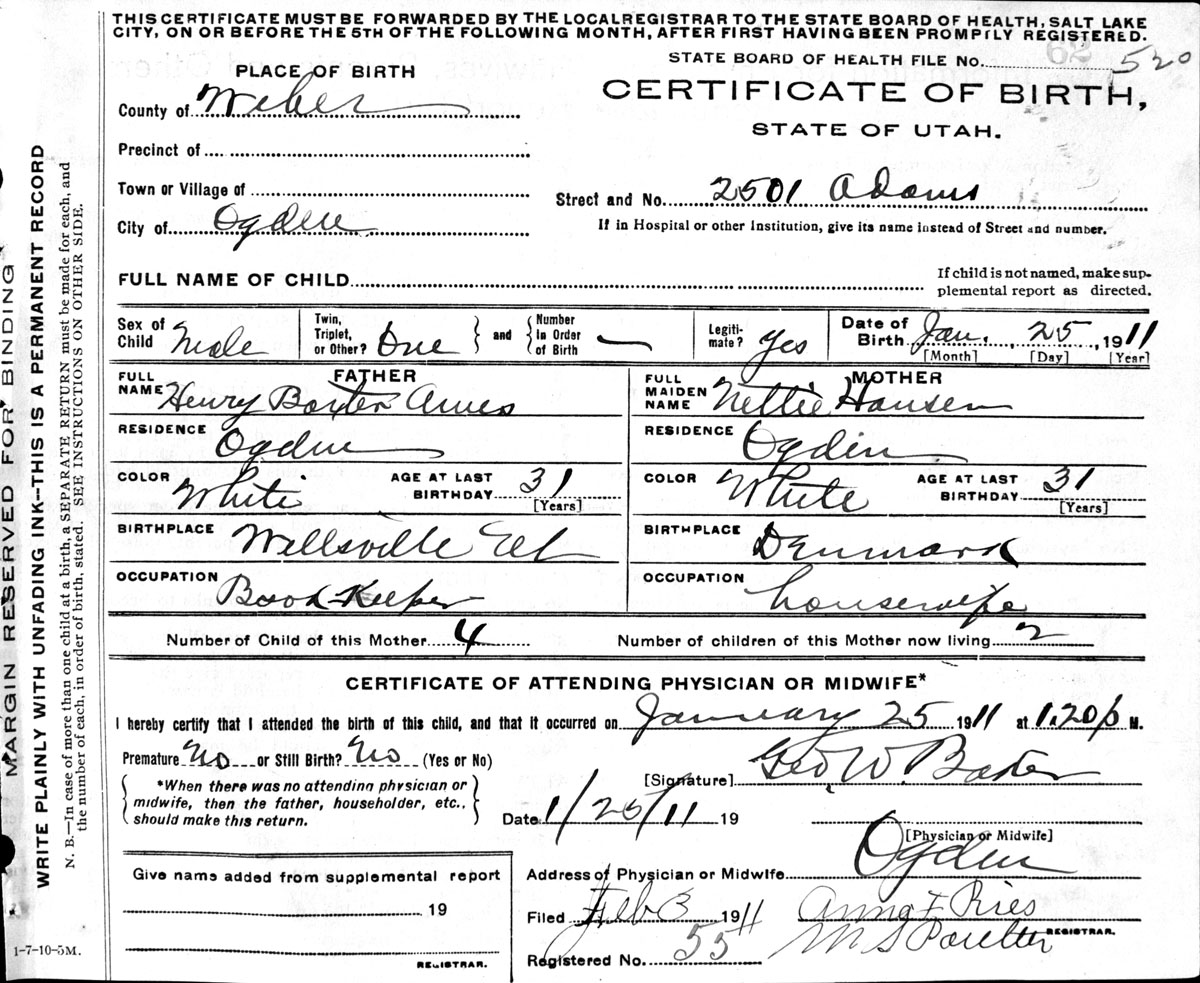 THIS CERTIFICATE MUST BE FORWARDED BY THE LOCAL REGISTRAR TO THE STATE BOARD OF HEALTH, SALT LAKE
CITY, ON OR BEFORE THE 5TH OF THE FOLLOWING MONTH, AFTER FIRST HAVING BEEN PROMPTLY REGISTERED.
STATE BOARD OF HEALTH FILE No. 62 520
PLACE OF BIRTH
CERTIFICATE OF BIRTH,
STATE OF UTAH.
County of Weber
Precinct of
Town or Village of
Street and No. 2501 Adams
City of Ogden
If in Hospital or other Institution, give its name instead of Street and number.
FULL NAME OF CHILD
If child is not named, make sup-
plemental report as directed.
Sex of Child Male
Twin, Triplet, or Other? One and Number In Order of Birth —
Legiti-mate? Yes
Date of Birth Jan. 25, 1911
[Month] [Day] [Year]
FATHER
FULL NAME Henry Baxter Ames
RESIDENCE Ogden
COLOR White AGE AT LAST BIRTHDAY 31
[Years]
BIRTHPLACE Wellsville Ut
OCCUPATION Book-Keeper
MOTHER
FULL MAIDEN NAME Nettie Hansen
RESIDENCE Ogden
COLOR White AGE AT LAST BIRTHDAY 31
[Years]
BIRTHPLACE Denmark
OCCUPATION housewife
Number of Child of this Mother 4 Number of children of this Mother now living 2
CERTIFICATE OF ATTENDING PHYSICIAN OR MIDWIFE*
I hereby certify that I attended the birth of this child, and that it occurred on January 25 1911 at 1.20 p M.
Premature No or Still Birth? No (Yes or No)
*When there was no attending physician or
midwife, then the father, householder, etc.,
should make this return.
[Signature] Geo W. Baxter
Date 1/25/11 19
[Physician or Midwife]
Address of Physician or Midwife Ogden
Give name added from supplemental report
19
REGISTRAR.
Filed Feb 3 1911 Anna F Ries
M S Poulter REGISTRAR.
Registered No. 55
1-7-10-5M.
MARGIN RESERVED FOR BINDING
WRITE PLAINLY WITH UNFADING INK--THIS IS A PERMANENT RECORD
N. B.—In case of more than one child at a birth, a SEPARATE RETURN must be made for each, and
the number of each, in order of birth, stated. SEE INSTRUCTIONS ON OTHER SIDE.